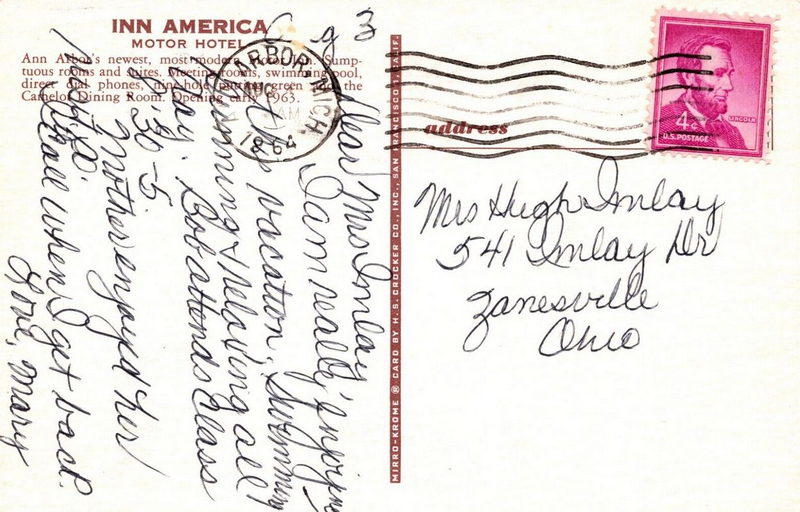 INN AMERICA
MOTOR HOTEL
Ann Arbor's newest, most modern Motor Inn. Sump-
tuous rooms and suites. Meeting rooms, swimming pool,
direct dial phones, nine-hole putting green and the
Camelot Dining Room. Opening early 1963.
ARBOR, MICH.
AM
1964
4¢
LINCOLN
U.S. POSTAGE
address
MIRRO-KROME ® CARD BY H. S. CROCKER CO., INC., SAN FRANCISCO 1, CALIF.
Dear Mrs Imlay,
I am really enjoying
vacation. Swimming
sunning & relaxing all
day. Bob attends class
8:30-5
Mother enjoyed her
call when I get back.
Love, Mary
Mrs Hugh Imlay
541 Imlay Dr
Zanesville
Ohio